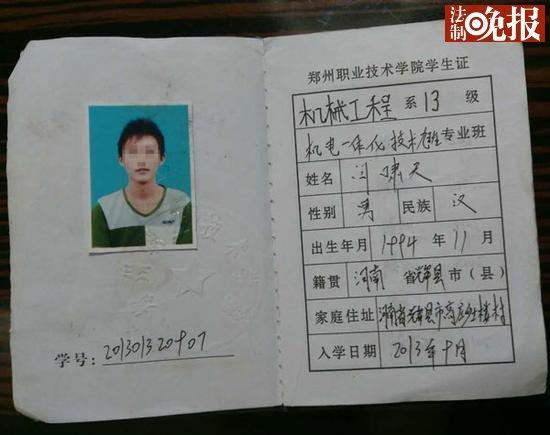 法制晚报
郑州职业技术学院学生证
机械工程系13级
机电一体化技术专业班
姓名 闫啸天
性别 男 民族 汉
出生年月 1994年11月
籍贯 河南省辉县市(县)
家庭住址 河南省辉县市高庄乡楼村
入学日期 2013年9月
学号:201301320907